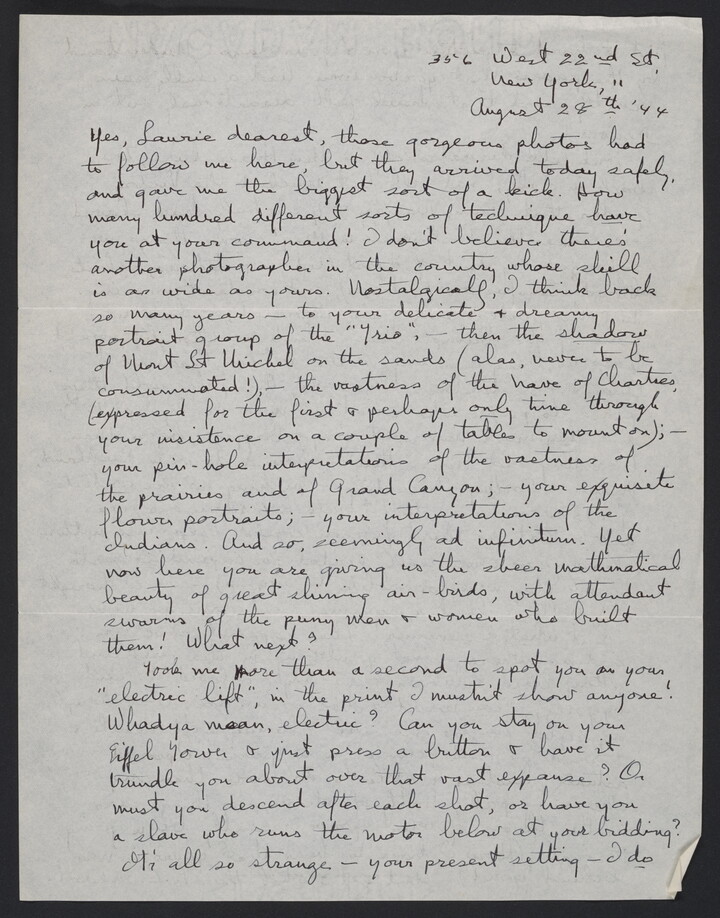 356 West 22nd St.
New York, "
August 28th '44
Yes, Laurie dearest, those gorgeous photos had
to follow me here, but they arrived today safely,
and gave me the biggest sort of a kick. How
many hundred different sorts of technique have
you at your command! I don't believe there's
another photographer in the country whose skill
is as wide as yours. Nostalgically, I think back
so many years — to your delicate & dreamy
portrait group of the "Trio"; — then the shadow
of Mont St Michel on the sands (alas, never to be
consummated!), — the vastness of the nave of Chartres,
(expressed for the first & perhaps only time through
your insistence on a couple of tables to mount on); —
your pin-hole interpretations of the vastness of
the prairies and of Grand Canyon; — your exquisite
flower portraits; — your interpretations of the
Indians. And so, seemingly ad infinitum. Yet
now here you are giving us the sheer mathematical
beauty of great shining air-birds, with attendant
swarms of the puny men & women who built
them! What next?
Took me more than a second to spot you on your
"electric lift", in the print I mustn't show anyone!
Whadya mean, electric? Can you stay on your
Eiffel Tower & just press a button & have it
trundle you about over that vast expanse? Or
must you descend after each shot, or have you
a slave who runs the motor below at your bidding?
It's all so strange — your present setting — I do